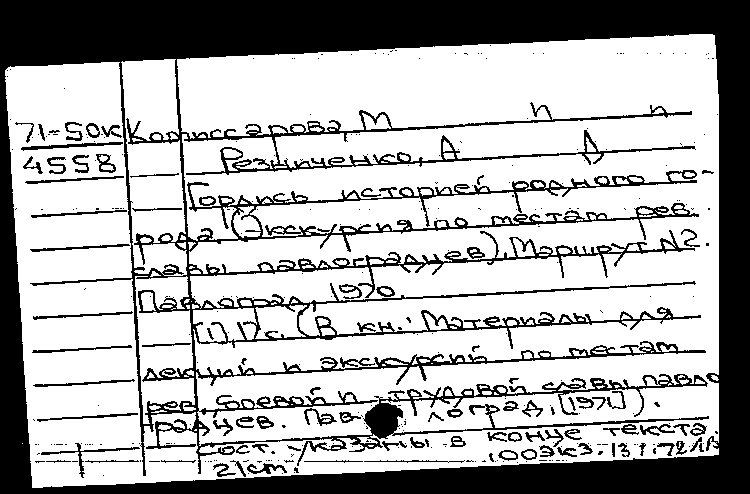 71-50к Комиссарова, М п п
4558 Резниченко, А Д
Гордись историей родного го-
рода. (Экскурсия по местам рев.
славы павлоградцев). Маршрут N2.
Павлоград, 1970.
[1], 17 с. (В кн.: Материалы для
лекций и экскурсий по местам
рев., боевой и трудовой славы павло
градцев. Павлоград, [1971]).
Сост. указаны в конце текста.
21 cm. 100 экз.